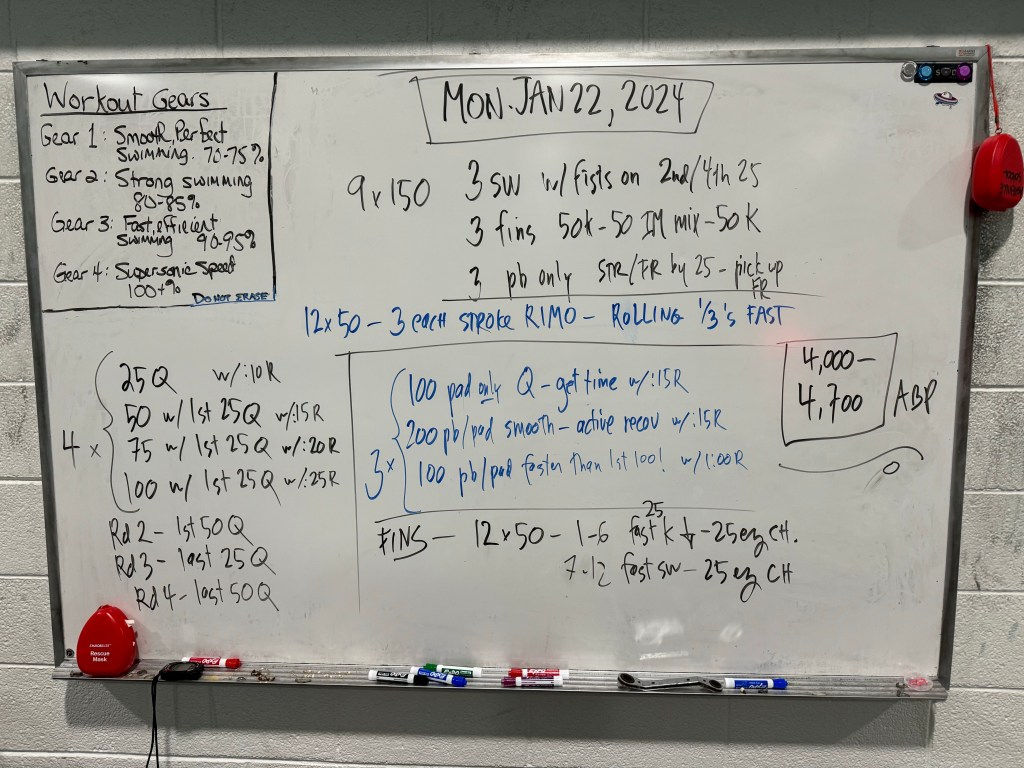 Workout Gears
Gear 1: Smooth, Perfect
Swimming. 70-75%
Gear 2: Strong swimming
80-85%
Gear 3: Fast, efficient
Swimming 90-95%
Gear 4: Supersonic Speed
100+%
DO NOT ERASE
MON. JAN 22, 2024
9 x 150 3 SW w/ Fists on 2nd/4th 25
3 fins 50K - 50 IM mix - 50 K
3 pb only STR/FR by 25 - pick up
FR
12 x 50 - 3 each STROKE RIMO - ROLLING 1/3's FAST
4 x
25 Q w/ :10 R
50 w/ 1st 25 Q w/ :15 R
75 w/ 1st 25 Q w/ :20 R
100 w/ 1st 25 Q w/ :25 R
Rd 2 - 1st 50 Q
Rd 3 - last 25 Q
Rd 4 - last 50 Q
3 x
100 pad only Q - get time w/ :15 R
200 pb/pad smooth - active recov w/ :15 R
100 pb/pad faster than 1st 100! w/ 1:00 R
4,000 -
4,700 ABP
25
FINS - 12 x 50 - 1-6 fast K ↓ - 25 ez CH.
7-12 fast sw - 25 ez CH
Rescue
Mask